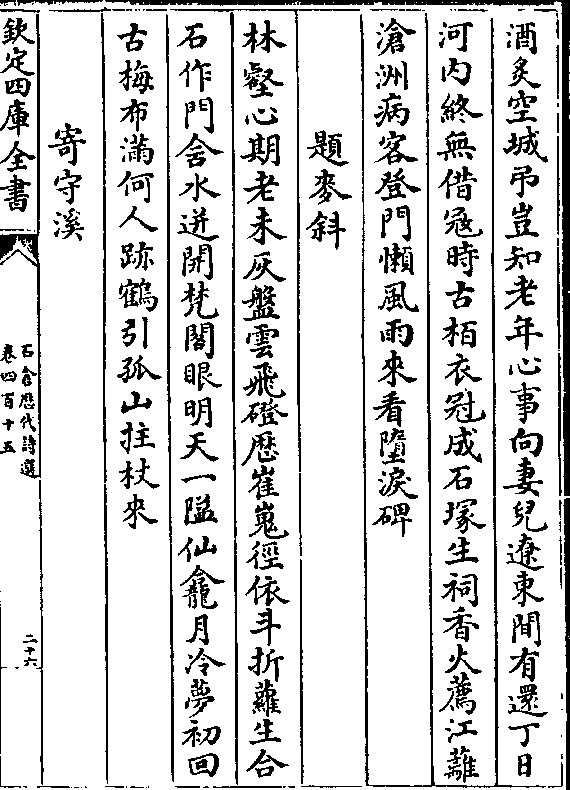 酒炙空城弔豈知老年心事向妻兒遼東間有還丁日
河内終無借冦時古栢衣冠成石塚生祠香火薦江蘺
滄洲病客登門懶風雨來看墮淚碑
題麥斜
林壑心期老未灰盤雲飛磴歴崔嵬徑依斗折蘿生合
石作門舍水迸開梵閣眼明天一隘仙龕月冷夢初回
古梅布滿何人跡鶴引孤山拄杖來
寄守溪
欽定四庫全書
石倉歴代詩選
卷四百十五
二十六